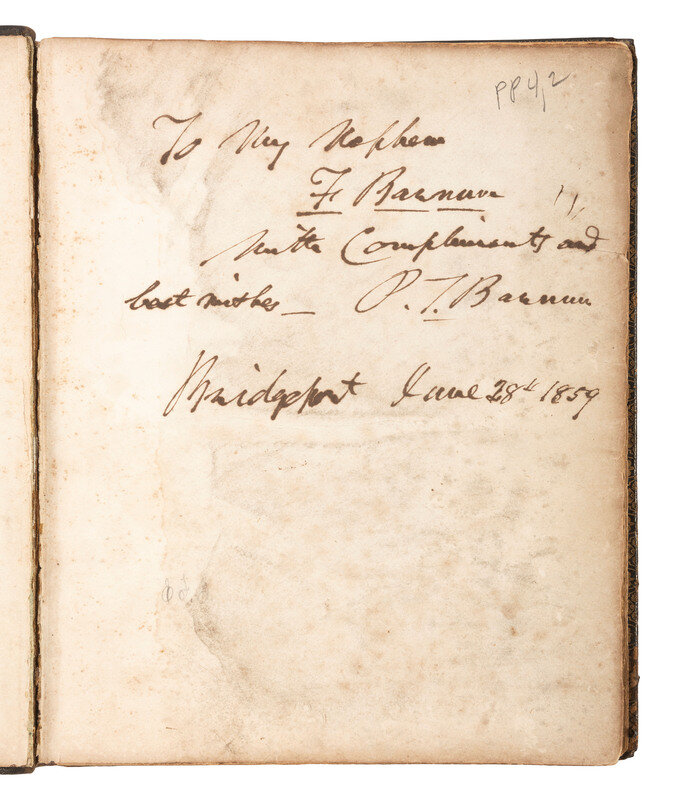 PP 4,2
To My Nephew
F Barnum
With Compliments and
best wishes — P. T. Barnum
Bridgeport June 28th 1859